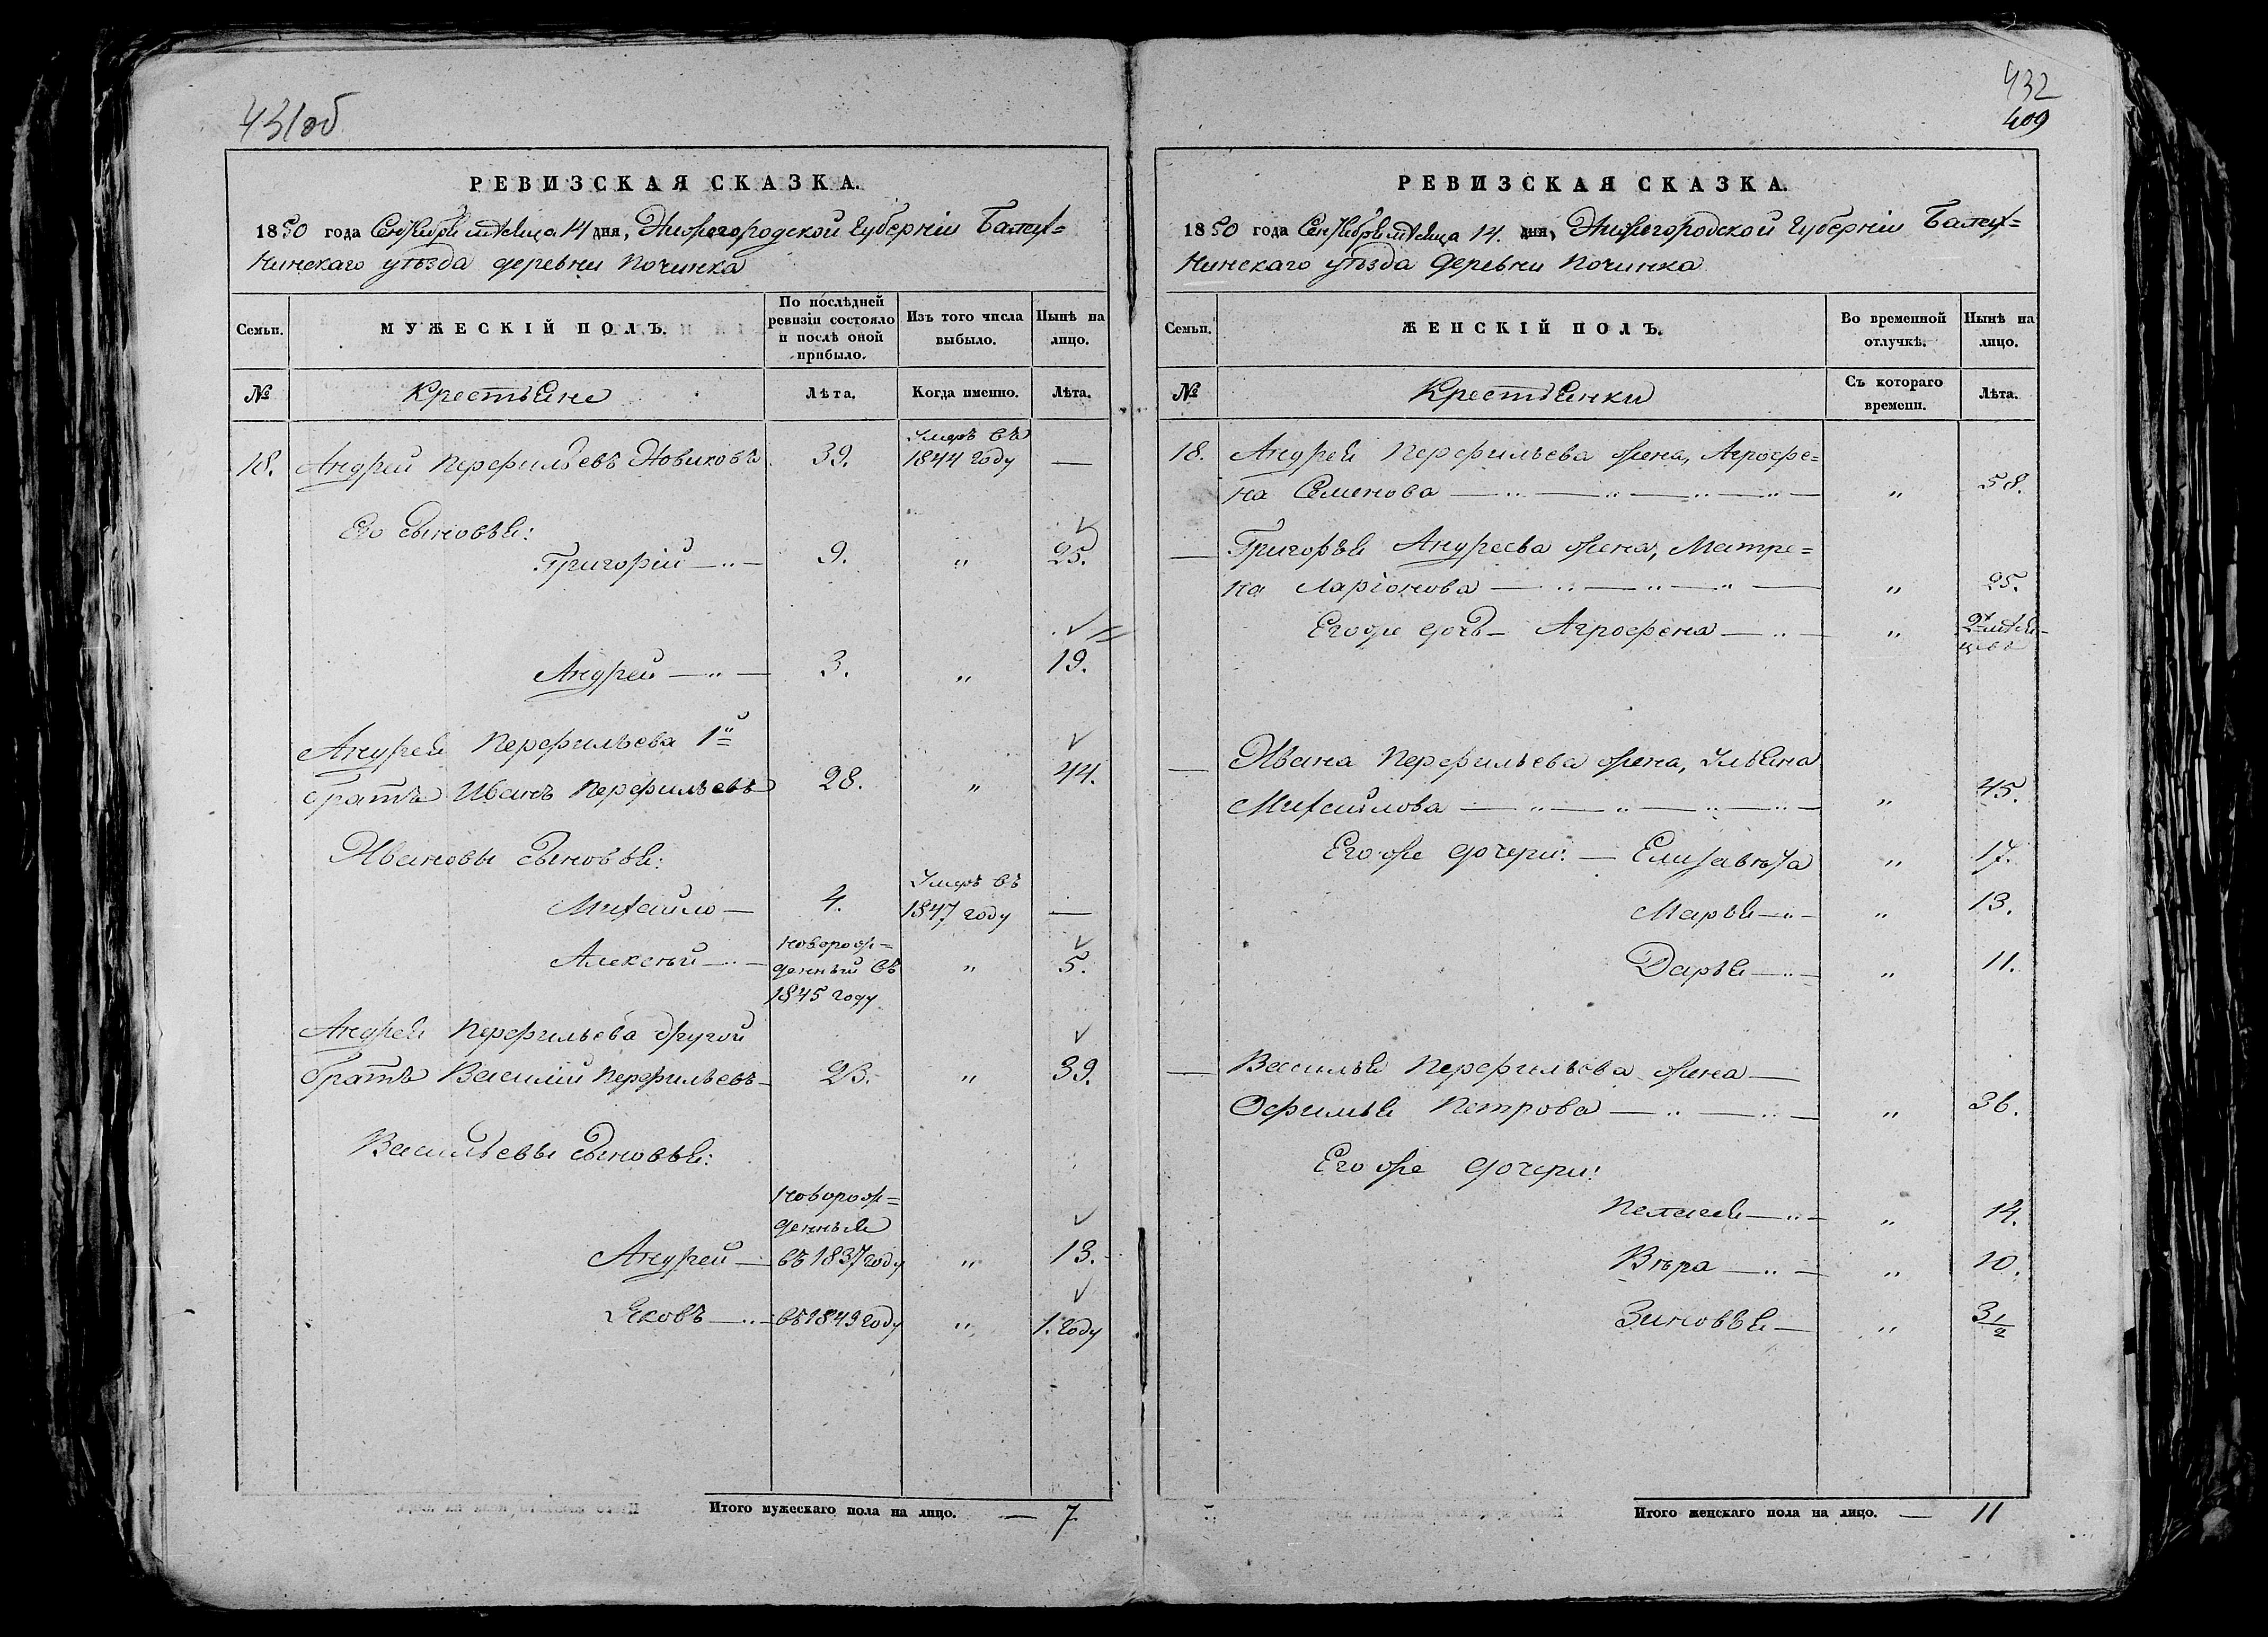 431об
РЕВИЗСКАЯ СКАЗКА.
1850 года Сентября мѣсяца 14 дня, Нижегородской Губерніи Балах=
нинскаго уѣзда деревни Починка
Семьи.
МУЖЕСКІЙ ПОЛЪ.
По послѣдней
ревизіи состояло
и послѣ оной
прибыло.
Изъ того числа
выбыло.
Нынѣ на
лицо.
№
Крестьяне
Лѣта.
Когда именно.
Лѣта.
18. Андрей Перфильевъ Новиковъ 39. Умеръ въ
1844 году —
Его сыновья:
Григорій —„— 9. „ 25.
Андрей —„— 3. „ 19.
Андрея Перфильева 1й
братъ Иванъ Перфильевъ 28. „ 44.
Ивановы сыновья:
Михайло — 4. Умеръ въ
1847 году —
Алексѣй —„— новорож=
денный въ
1845 году „ 5.
Андрея Перфильева другой
братъ Василій Перфильевъ 23. „ 39.
Васильевы сыновья:
новорож=
денные
Андрей — въ 1837 году „ 13.
Яковъ —„— въ 1849 году „ 1. году
Итого мужескаго пола на лицо. — 7
432
409
РЕВИЗСКАЯ СКАЗКА.
1850 года Сентября мѣсяца 14. дня, Нижегородской Губерніи Балах=
нинскаго уѣзда деревни Починка
Семьи.
ЖЕНСКІЙ ПОЛЪ.
Во временной
отлучкѣ.
Нынѣ на
лицо.
№
Крестьянки
Съ котораго
времени.
Лѣта.
18. Андрея Перфильева жена, Агрофе=
на Семенова —„—„—„—„— „ 58.
— Григорья Андреева жена, Матре=
на Ларіонова —„—„—„— „ 25.
Его же дочь — Агрофена —„— „ 2х мѣся=
цовъ
— Ивана Перфильева жена, Ульяна
Михайлова —„—„—„—„— „ 45.
Его же дочери: — Елизавѣта „ 17.
Марья —„— „ 13.
Дарья —„— „ 11.
— Василья Перфильева жена —
Офимья Петрова —„—„— „ 36.
Его же дочери:
Пелагея —„— „ 14.
Вѣра —„— „ 10.
Зиновья — „ 3 1/2
Итого женскаго пола на лицо. — 11